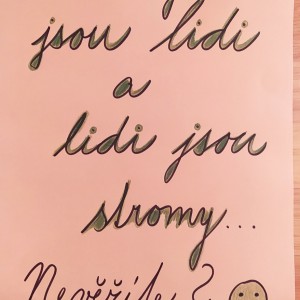 jsou lidi
a
lidi jsou
stromy...
Nevěříte?